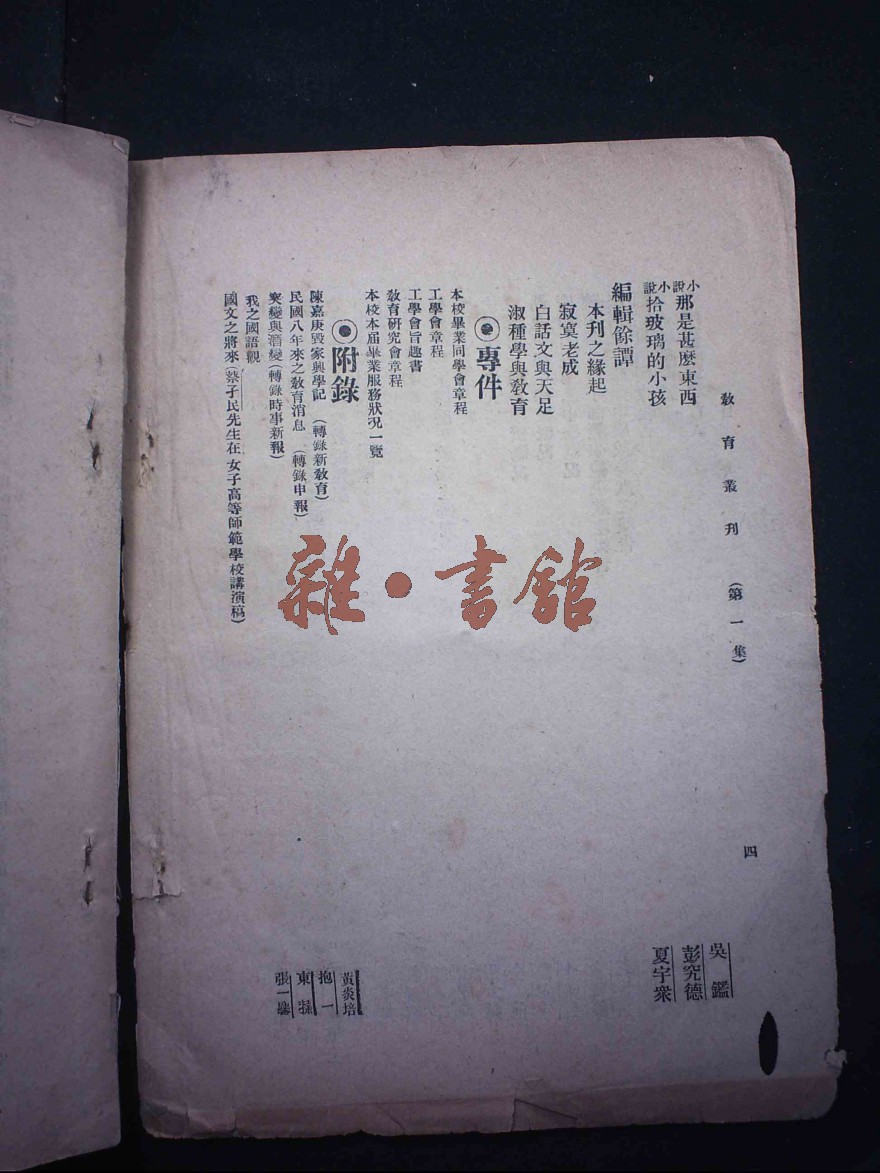 教育叢刊 (第一集) 四
小說 那是甚麼東西 吳鑑
小說 拾玻璃的小孩 彭究德
編輯餘譚 夏宇衆
本刊之緣起
寂寞老成
白話文與天足
淑種學與教育
專件
本校畢業同學會章程
工學會章程
工學會旨趣書
教育研究會章程
本校本屆畢業服務狀况一覽
附錄
陳嘉庚毀家興學記 (轉錄新教育) 黃炎培
民國八年來之教育消息 (轉錄申報) 抱一
突變與潛變 (轉錄時事新報) 東蓀
我之國語觀 張一麐
國文之將來 (蔡孑民先生在女子高等師範學校講演稿)
雜·書館